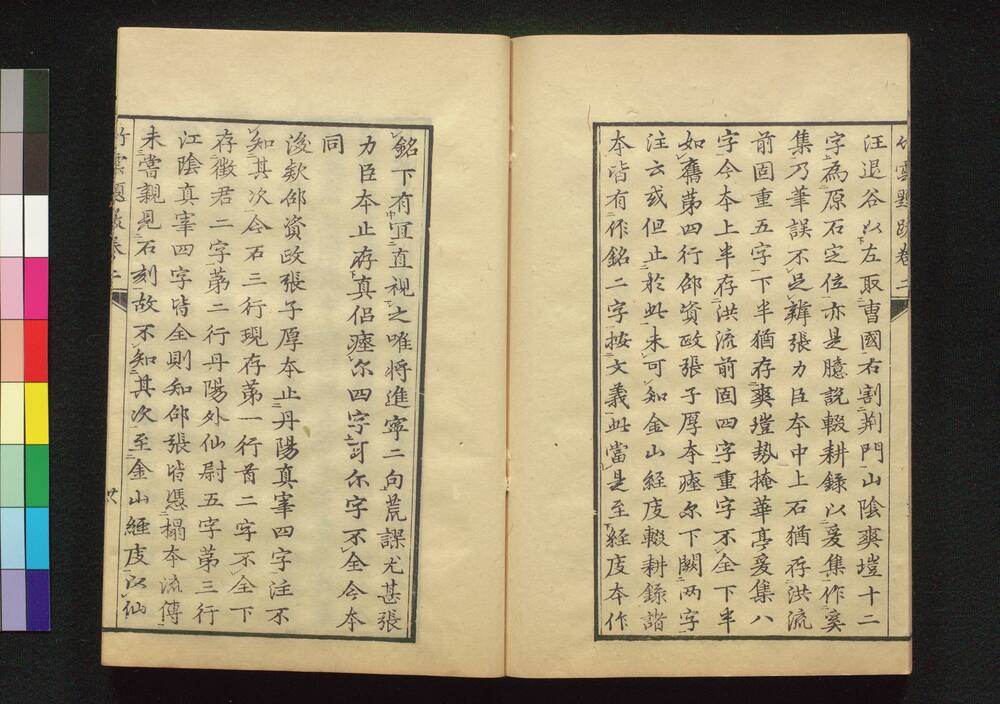 竹雲題跋卷二
汪退谷以左取曹國右割荆門山陰爽塏十二
字為原石定位亦是臆說輟耕錄以爰集作奚
集乃筆誤不足辨張力臣本中上石猶存洪流
前固重五字下半猶存爽塏勢掩華亭爰集八
字今本上半存洪流前固四字重字不全下半
如舊苐四行邵資政張子厚本瘞尔下闕两字
注云或但止於此未可知金山經庋輟耕錄諸
本皆有作銘二字按文義此當是至經庋本作
銘下有冝直視之唯将進寧二向荒謬尤甚張
力臣本止存真侣瘞尔四字訂尓字不全今本
同
後欵邵資政張子厚本止丹陽真宰四字注不
知其次今石三行現存苐一行首二字不全下
存徵君二字苐二行丹陽外仙尉五字苐三行
江陰真宰四字皆全則知邵張皆憑榻本流傳
未嘗親見石刻故不知其次至金山經庋以仙
竹雲題跋卷二